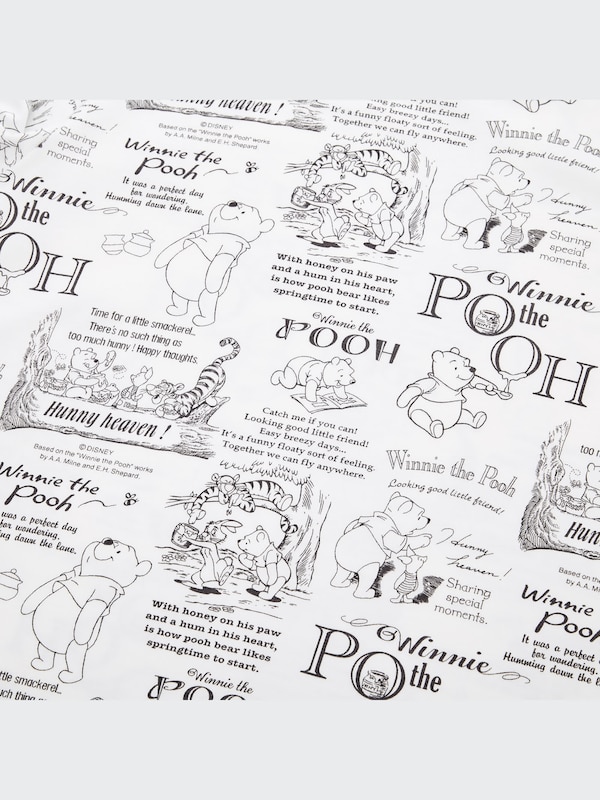 Hunny heaven !
©DISNEY
Based on the "Winnie the Pooh" works
by A.A. Milne and E.H. Shepard
can!
Looking good little friend!
Easy breezy days...
It's a funny floaty sort of feeling.
Together we can fly anywhere.
Hunny
heaven!
Sharing
special
moments.
Winnie the
Pooh
It was a perfect day
for wondering.
Humming down the lane.
Winnie the Pooh
Looking good little friend!
Hunny
heaven!
Sharing
special
moments.
Winnie
the
POOH
With honey on his paw
and a hum in his heart,
is how pooh bear likes
springtime to start.
Winnie
the
POOH
Time for a little smackerel...
There's no such thing as
too much hunny ! Happy thoughts.
Hunny heaven !
©DISNEY
Based on the "Winnie the Pooh" works
by A.A. Milne and E.H. Shepard
Winnie the
POOH
Catch me if you can!
Looking good little friend!
Easy breezy days...
It's a funny floaty sort of feeling.
Together we can fly anywhere.
Winnie the Pooh
Looking good little friend!
Hunny
heaven!
Sharing
special
moments.
too
Hun
Based on
by A.A.
Winnie the
Pooh
was a perfect day
for wondering.
Humming down the lane.
With honey on his paw
and a hum in his heart,
is how pooh bear likes
springtime to start.
Winnie
the
PO
Winnie the
Pooh
It was a perfect day
for wondering.
Humming down the lane.
little smackerel...
such thing as
Winnie the
POOH